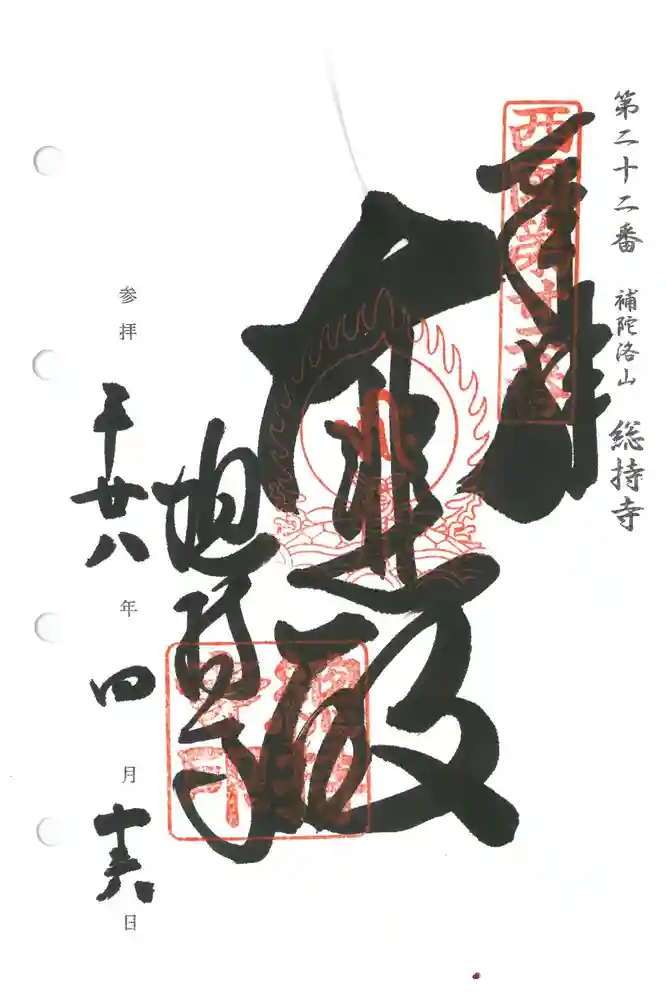 第二十二番 補陀洛山 総持寺
奉拝
西国第廿二番
大悲殿
総持寺
参拝 平廿八年四月十六日